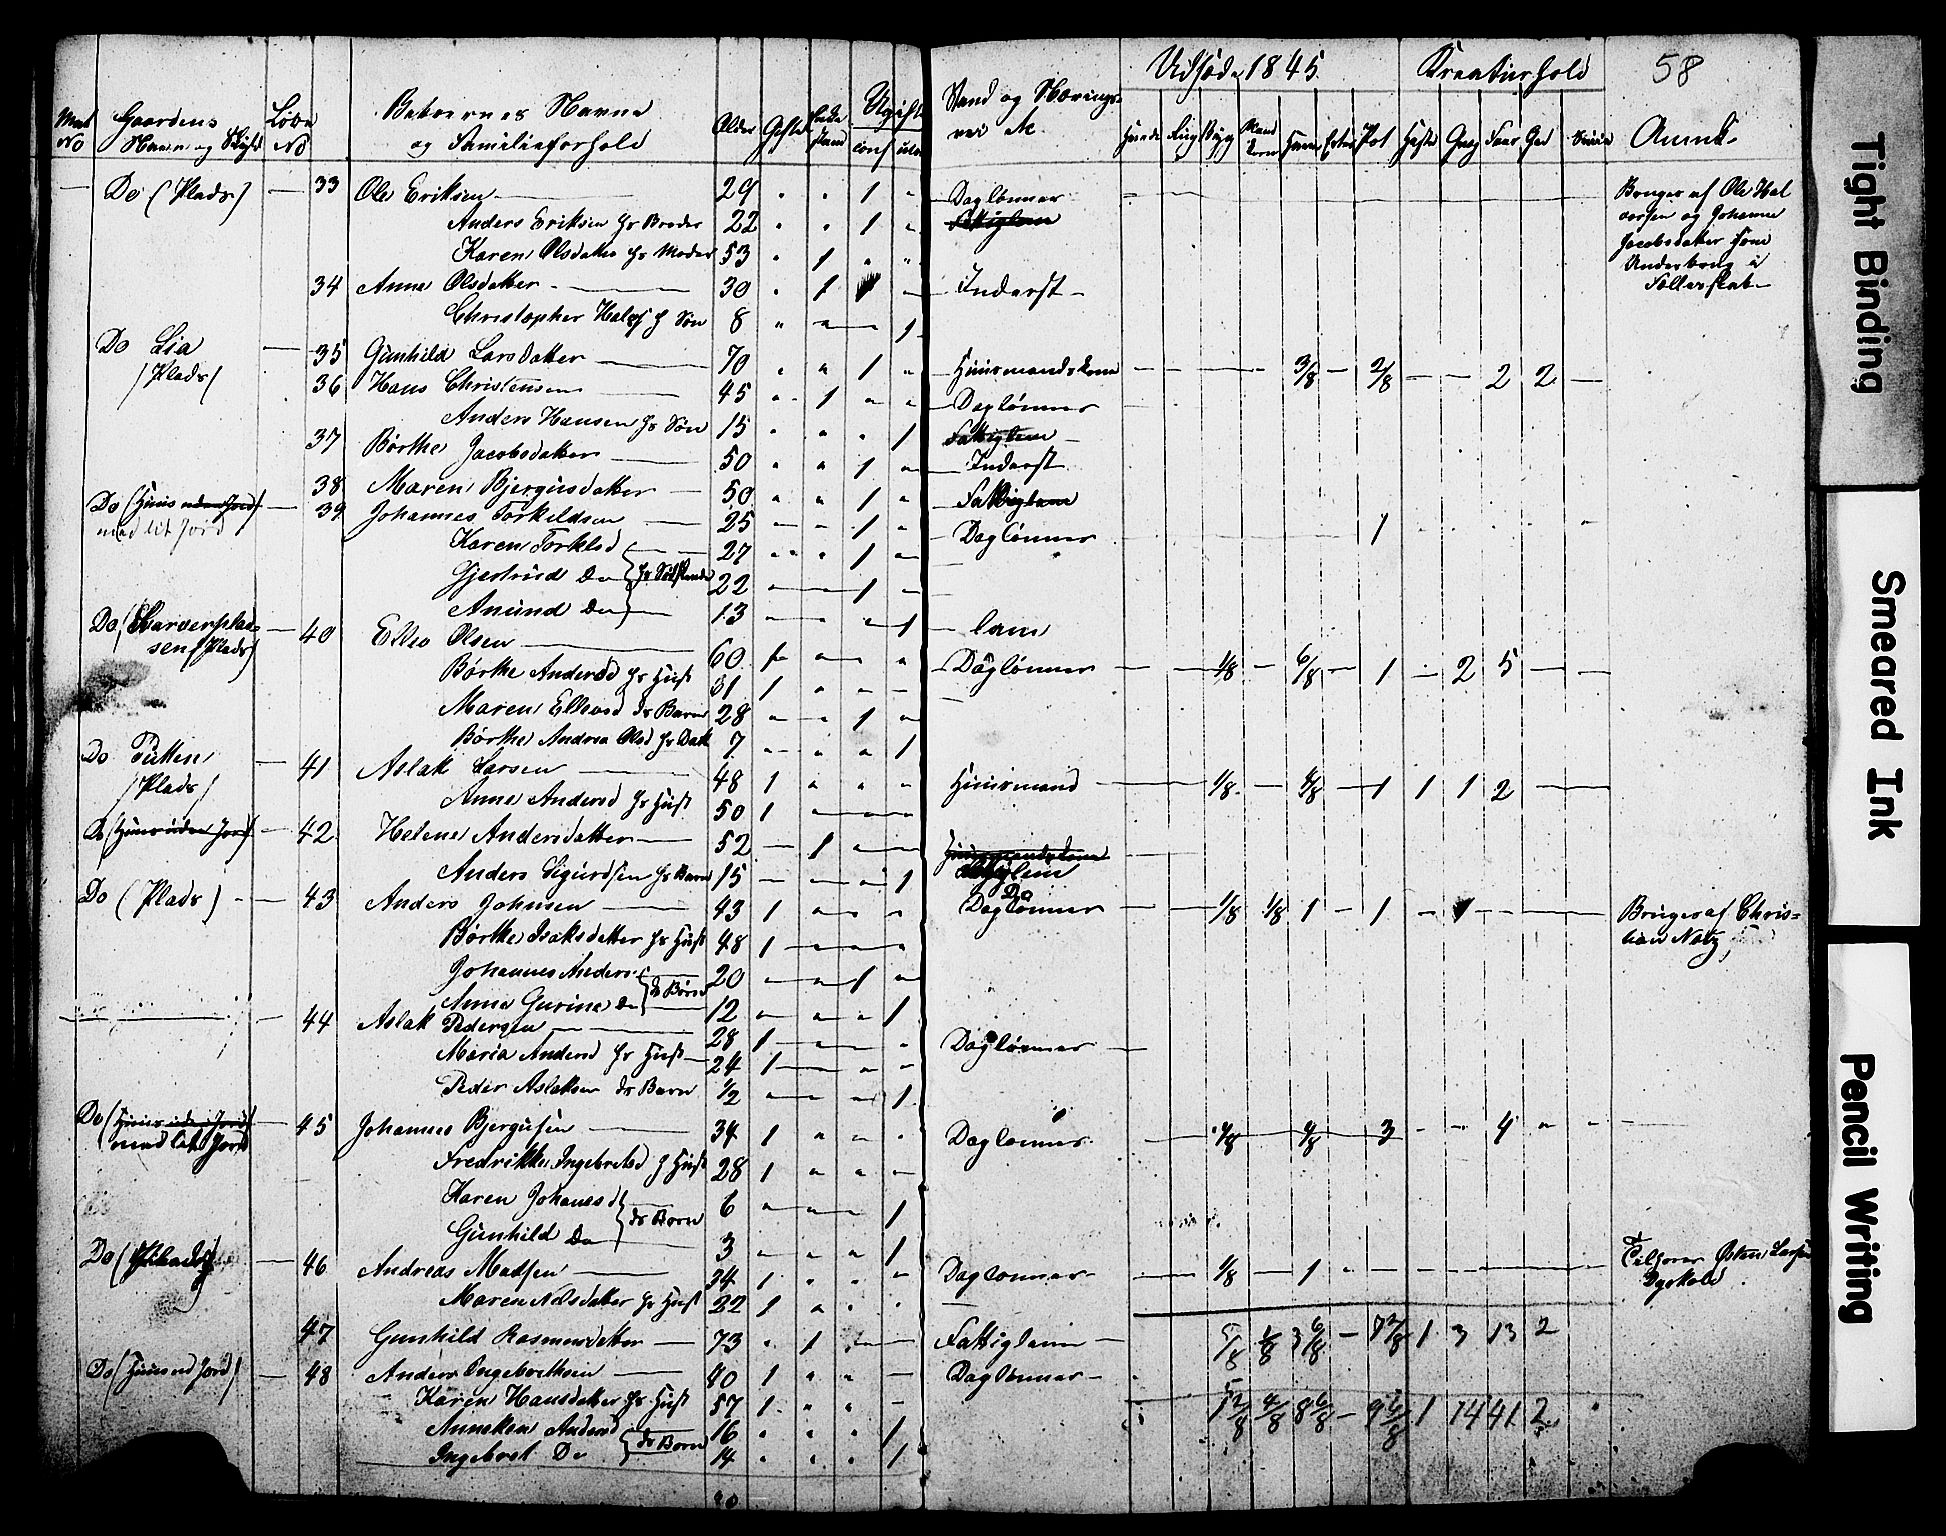 Udsæd 1845. Kreaturhold 58
Mat No Gaardens Navn og Løbe No Beboernes Navne og Familieforhold Alder Gifte Enke Stand Ugift conf Stand og Nærings- vei Hvede Rug Byg Bland Korn Havre Erter Pot Heste Qvæg Faar Ged Sviin Anmk.
Do (Plads) 33 Ole Eriksen 29 1 Daglønner Bruger af Ole Hal
Anders Eriksen hs Broder 22 1 vorsen og Johanne
Karen Olsdatter hs Moder 53 1 Jacobsdatter som
34 Anne Olsdatter 30 1 Inderst Underbrug i
Christopher Halvs hs Søn 8 1 Fællerskab
Do Lia 35 Gunhild Larsdatter 70 1 Huusmandskone 3/8 2/8 2 2
(Plads) 36 Hans Christensen 45 1 Daglønner
Anders Hansen hs Søn 15 1 Fattiglem
37 Børthe Jacobsdatter 50 1 Inderst
38 Maren Bjergusdatter 50 1 Fattiglem
Do (Huus uden Jord) 39 Johannes Torkildsen 25 1 Daglønner 1
med lit Jord
Karen Torklsd 27 1
Gjertrud Do hs Sødskende 22 1
Amund Do 13 1 lam
Do 40 Ellev Olsen 60 Daglønner 1/8 6/8 1 2 5
sen (Plads) Børthe Andersd hs Hust 61 1
Maren Ellevsd ds Barn 28 1
Børthe Andrea Olsd hs Datt 7 1
Do Putten 41 Aslak Larsen 48 1 Huusmand 1/8 4/8 1 1 1 2
(Plads) Anne Andersd hs Hust 50 1
Do (Huus uden Jord) 42 Helene Andersdatter 52 1 Huusmandskone
Anders Sigurdsen hs Barn 15 1
Do (Plads) 43 Anders Johnsen 43 1 Daglønner 1/8 1/8 1 1 1 Bruger af Chris=
Børthe Isaksdatter hs Hust 48 1 tian
Johannes Anders 20 1
Anne Gurine Do ds Børn 12 1
44 Aslak Pedersen 28 1 Daglønner
Maria Andersd hs Hust 24 1
Peder Aslaksen ds Barn 1/2 1
Do (Huus uden Jord) 45 Johannes Bjergusen 34 1 Daglønner 4/8 3 4
med lidt Jord Fredrikke Ingebretsd hs Hust 28 1
Karen Johanesd 6 1
Gunhild Do ds Børn 3 1
Do 46 Andreas Madsen 34 1 Daglønner 1/8 1 Tilhører Østen Larsen
Maren Nilsdatter hs Hust 22 1 Dyrkolb
47 Gunhild Rasmusdatter 73 1 Fattiglem 5/8 1/8 3 6/8 7 2/8 1 3 13 2
Do (Huus ud Jord) 48 Anders Ingebrethsen 40 1 Daglønner
Karen Hansdatter hs Hust 57 1 1 2/8 4/8 8 6/8 9 6/8 1 14 41 2
Anneken Andersd 16 1
Ingebret Do ds Børn 14 1
Tight Binding
Smeared Ink
Pencil Writing